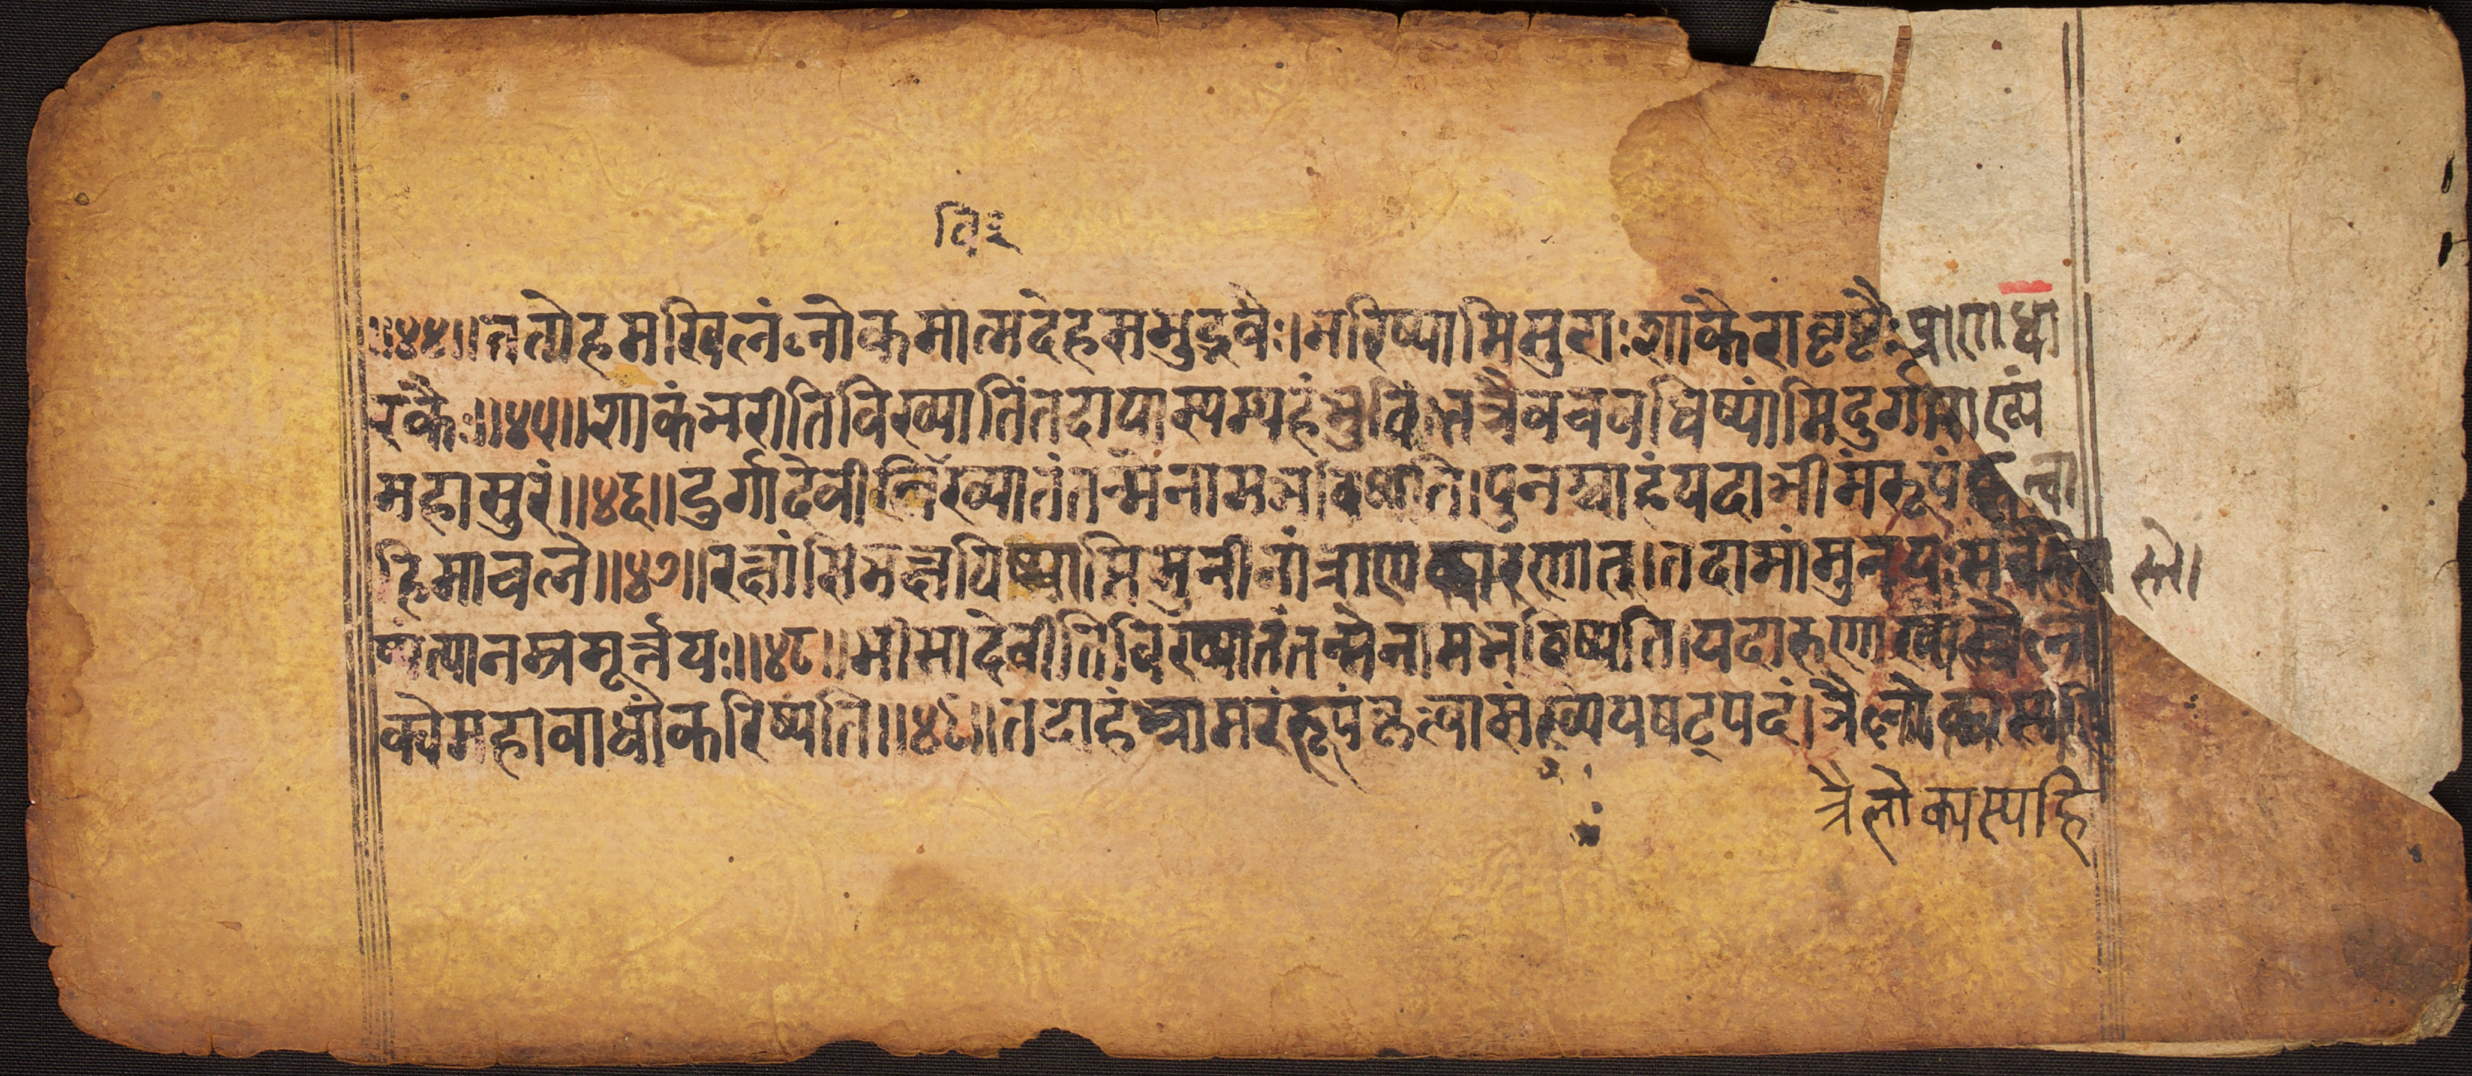 वि२
॥४४॥ततोहमखिलंलोकमात्मदेहसमुद्भवैः।भरिष्यामिसुराःशाकैरावृष्टैःप्राणधा
रकैः॥४५॥शाकंभरीतिविख्यातिंतदायास्यम्यहंभुवि।तत्रैवचवधिष्यांमिदुर्गमाख्यं
महासुरं॥४६॥दुर्गादेवीतिविख्यातंतन्मेनामभविष्यति।पुनश्चाहंयदाभीमंरूपंकृत्वा
हिमाचले॥४७॥रक्षांसिभक्षयिष्यामिमुनीनांत्राणकारणात्।तदामांमुनयःसर्वेस्तो
ष्यंत्यानम्रमूर्त्तयः॥४८॥भीमादेवीतिविख्यातंतन्मेनामभविष्यति।यदारुणाख्यस्त्रैलो
क्येमहाबाधांकरिष्यति॥४९॥तदाहंभ्रामरंरूपंकृत्वासंख्येयषट्पदं।त्रैलोक्यस्यहि
त्रैलोक्यस्यहि